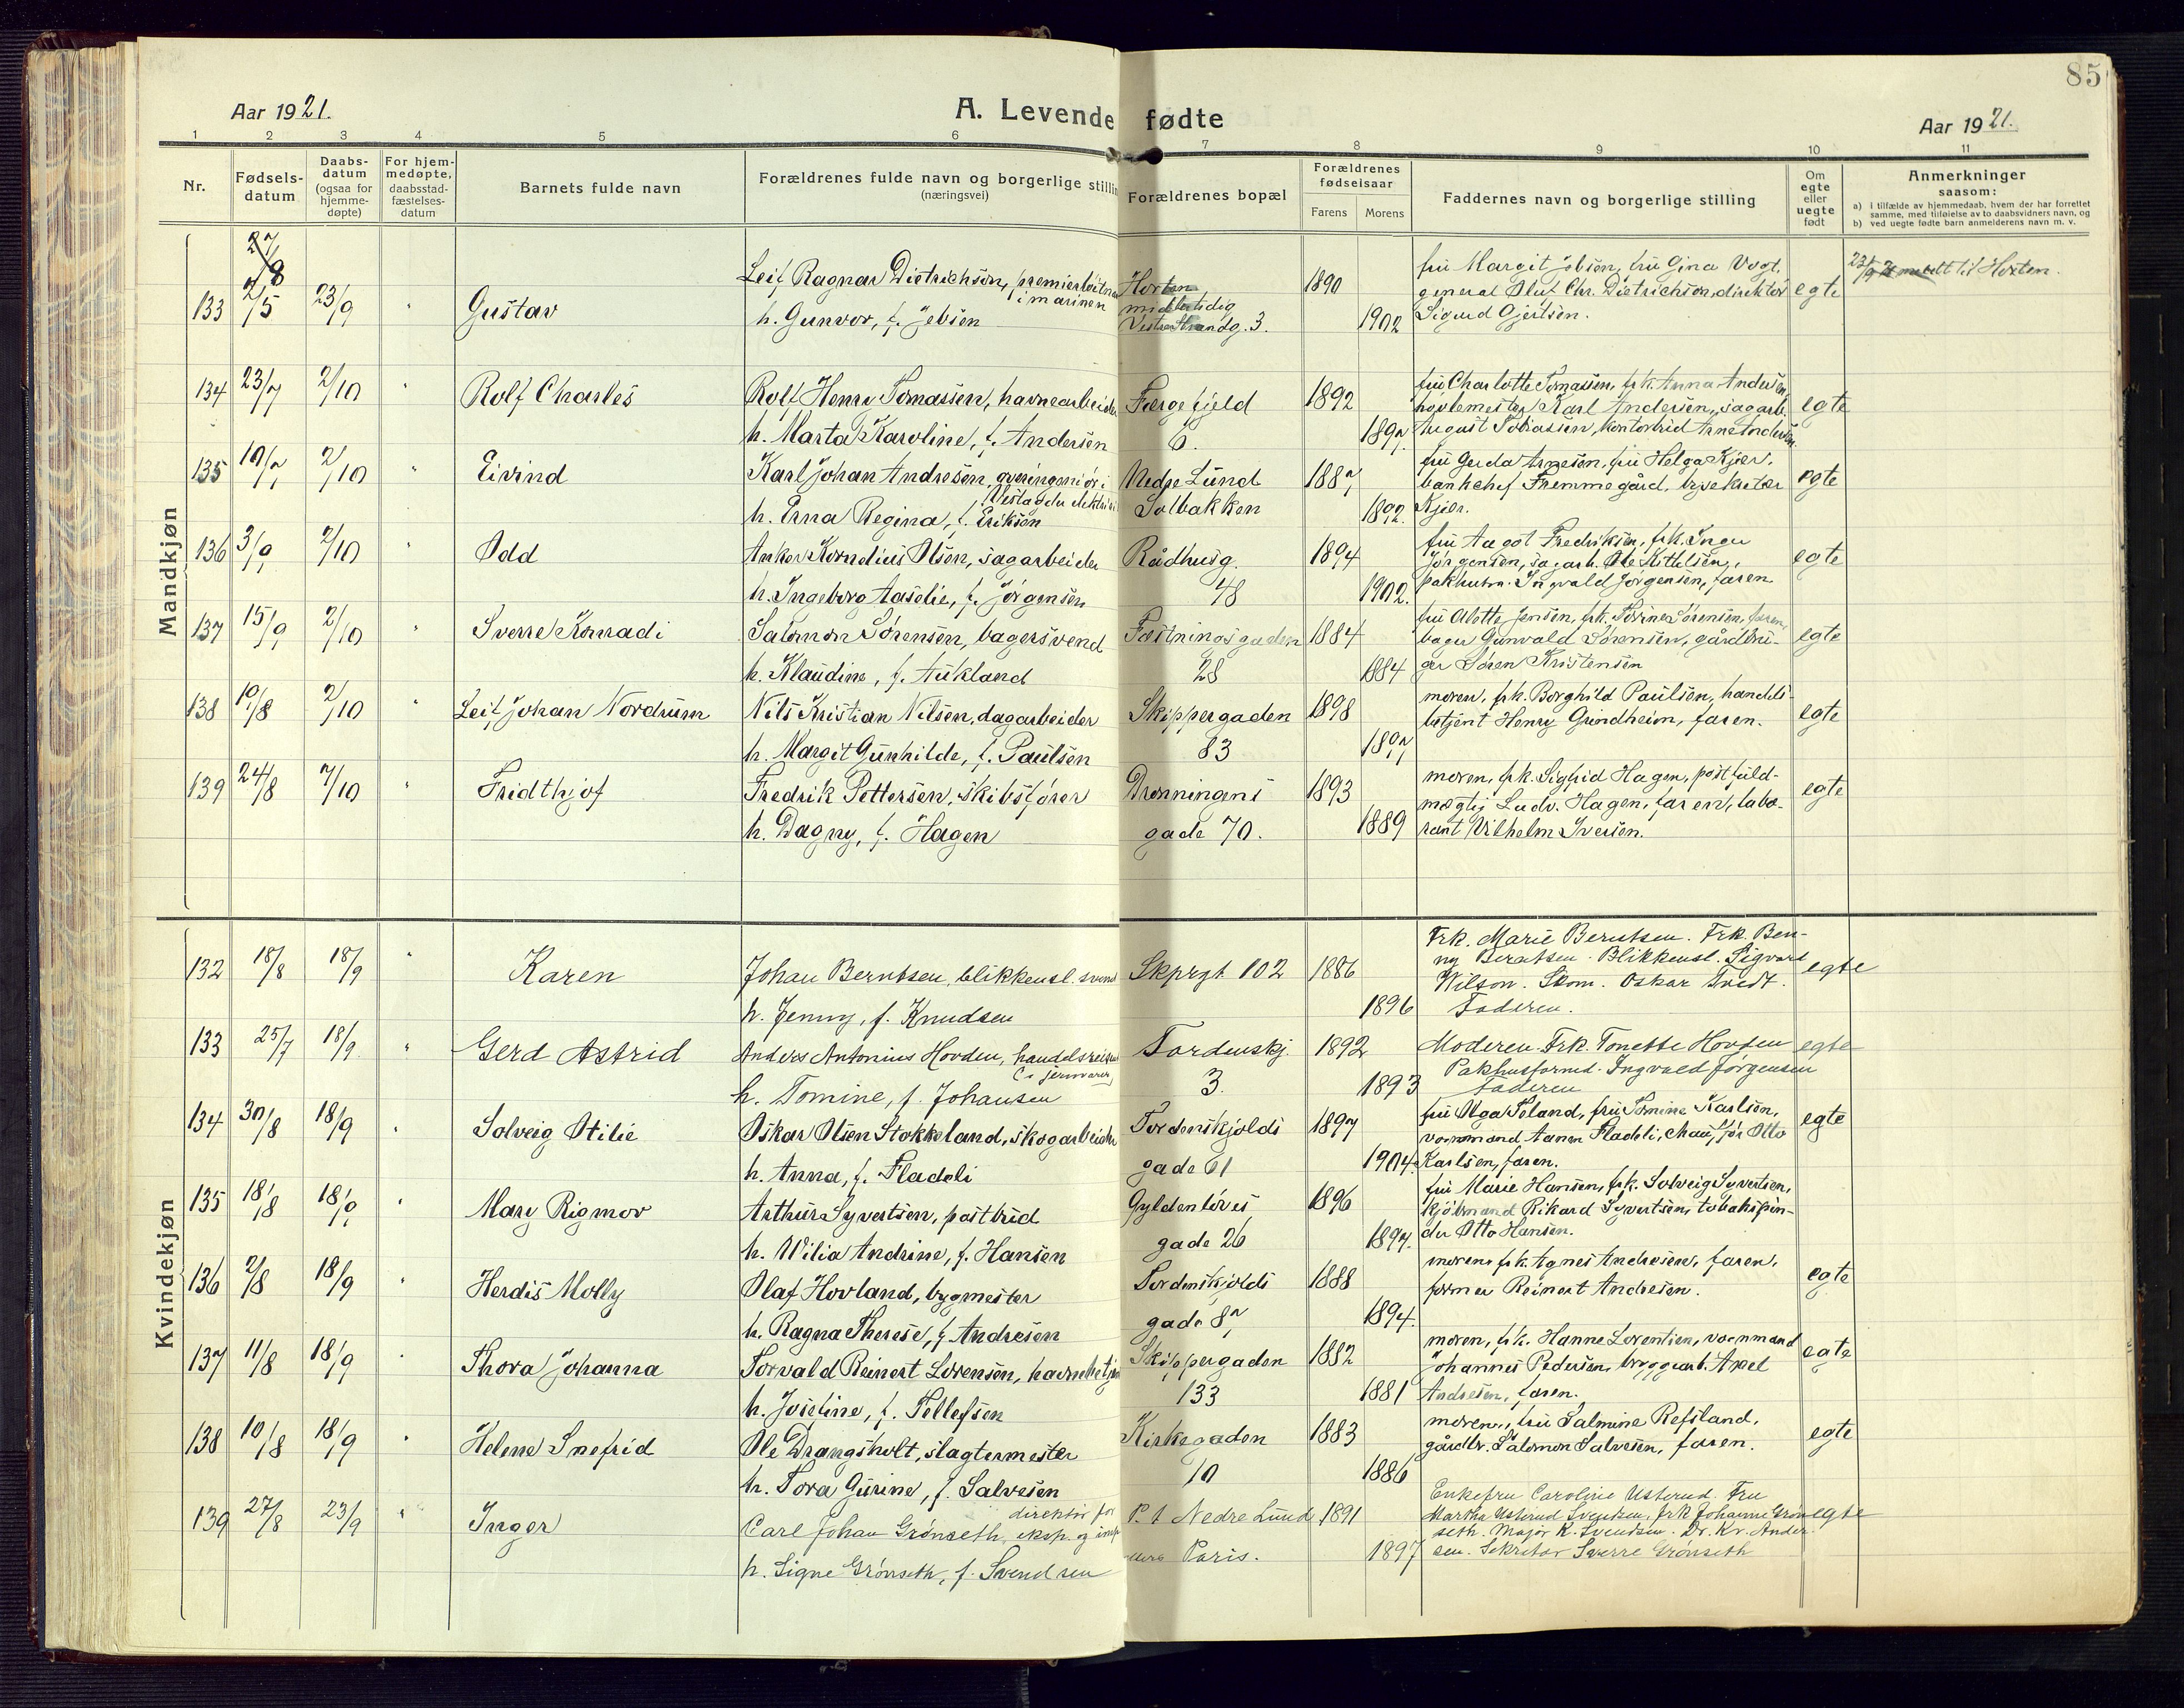 85
Aar 1921.
A. Levende fødte
Aar 1921.
1 2 3 4 5 6 7 8 9 10 11
Nr.
Fødsels-
datum
Daabs-
datum
(ogsaa for
hjemme-
døpte)
For hjem-
medøpte,
daabsstad-
fæstelses-
datum
Barnets fulde navn
Forældrenes fulde navn og borgerlige stilling
(næringsvei)
Forældrenes bopæl
Forældrenes
fødselsaar
Farens Morens
Faddernes navn og borgerlige stilling
Om
egte
eller
uegte
født
Anmerkninger
saasom:
a) i tilfælde av hjemmedaab, hvem der har forrettet
samme, med tilføielse av to daabsvidners navn, og
b) ved uegte fødte barn anmelderens navn m. v.
Mandkjøn
133 2/5 23/9 " Gustav
Leif Ragnar Dietrichson, premierløitnant
i marinen
h. Gunvor, f. Jebsen
Horten,
midlertidig
Vestre Strandg. 3.
1890
1902
fru Margit Jebsen, fru Gina Vogt,
general Oluf Chr. Dietrichson, direktør
Sigurd Gjertsen.
egte
23/9 21 meldt til Horten.
134 23/7 2/10 " Rolf Charles
Rolf Henry Tomassen, havnearbeider
h. Marta Karoline, f. Andersen
Færgefjeld
6.
1892
1897
fru Charlotte Tomassen, frk. Anna Andersen,
høvlemester Karl Andersen, sagarb.
August Tobiassen, kontorbud Arne Andersen
egte
135 10/7 2/10 " Eivind
Karl Johan Andresen, overingeniør i
h. Erna Regina, f. Eriksen
Nedre Lund
Solbakken
1887
1892.
fru Gerda Arnesen, fru Helga Kjær,
bankchef Fremmegård, bysekretær
Kjær.
egte
136 3/9 2/10 Odd
Anker Kornelius Olsen, sagarbeider
h. Ingeborg Aaselie, f. Jørgensen
Rådhusg.
48
1894
1902.
fru Aagot Fredriksen, frk. Inger
Jørgensen, sagarb. Ole Kittelsen,
pakhusm. Ingvald Jørgensen, faren
egte
137 15/9 2/10 " Sverre Konradi
Salomon Sørensen, bagersvend
h. Klaudine, f. Aukland
Fæstningsgaden
28
1884
1884
fru Alette Jensen, frk. Torine Sørensen, faren,
bager Gunvald Sørensen, gårdbru-
ger Søren Kristensen
egte
138 10/8 2/10 " Leif Johan Nordrum
Nils Kristian Nilsen, dagarbeider
h. Margit Gunhilde, f. Paulsen
Skippergaden
83
1898
1897
moren, frk. Borghild Paulsen, handels-
betjent Henry Grindheim, faren.
egte
139 24/8 7/10 " Fridthjof
Fredrik Pettersen, skibsfører
h. Dagny, f. Hagen
Dronningens
gade 70.
1893
1889
moren, frk. Sigfrid Hagen, postfuld-
mægtig Ludv. Hagen, faren, labo-
rant Vilhelm Iversen.
egte
Kvindekjøn
132 18/8 18/9 " Karen
Johan Berntsen, blikkensl. svend
h. Jenny, f. Knudsen
Skprgt 102
1886
1896
Frk. Marie Berntsen. Frk. Ben-
ny Berntsen. Blikkensl. Sigvart
Wilson. Skom. Oskar Tvedt.
Faderen.
egte
133 25/7 18/9 " Gerd Astrid
Anders Antonius Hovden, handelsreisen
(i jernvarer)
h. Tomine, f. Johansen
Tordenskj.
3.
1892
1893
Moderen. Frk. Tonette Hovden
Pakhusformd. Ingvald Jørgensen
Faderen
egte
134 30/8 18/9 " Solveig Otilie
Oskar Olsen Stokkeland, skogarbeider
h. Anna, f. Fladeli
Tordenskjolds
gade 61
1897
1904.
fru Olga Toland, fru Tomine Karlsen,
vognmand Aanen Fladeli, chauffør Otto
Karlsen, faren.
egte
135 18/8 18/9 " Mary Rigmor
Arthur Syvertsen, postbud
h. Wilia Andrine, f. Hansen
Gyldenløves
gade 26
1896
1897.
fru Marie Hansen, frk. Solveig Syvertsen,
kjøbmand Rikard Syvertsen, tobakspin-
der Otto Hansen.
136 2/8 18/9 " Herdis Molly
Olaf Hovland, bygmester
h. Ragna Therese, f. Andresen
Tordenskjolds
gade 87
1888
1894.
moren, frk. Agnes Andresen, faren,
former Reinert Andresen.
egte
137 11/8 18/9 " Thora Johanna
Torvald Reinert Lorensen, havnebetjent
h. Josefine, f. Tellefsen
Skippergaden
133
1882
1881
moren, frk. Hanne Lorentsen, vognmand
Johannes Pedersen, bryggearb. Axel
Andresen, faren.
egte
138 10/8 18/9 " Helene Snefrid
Ole Drangsholt, slagtermester
h. Tora Gurine, f. Salvesen
Kirkegaden
10
1883
1886
moren, fru Salmine Refsland,
gårdbr. Salomon Salvesen, faren.
egte
139 27/8 23/9 " Inger
direktør for
Carl Johan Grønseth, eksp. og imp
h. Signe Grønseth, f. Svendsen
P. t Nedre Lund
Paris.
1891
1897
Enkefru Caroline Usterud. Fru
Martha Usterud Svendsen, frk Johanne Grøn-
seth. Major K. Svendsen. Dr. Kr. Ander
sen. Sekretær Sverre Grønseth
egte